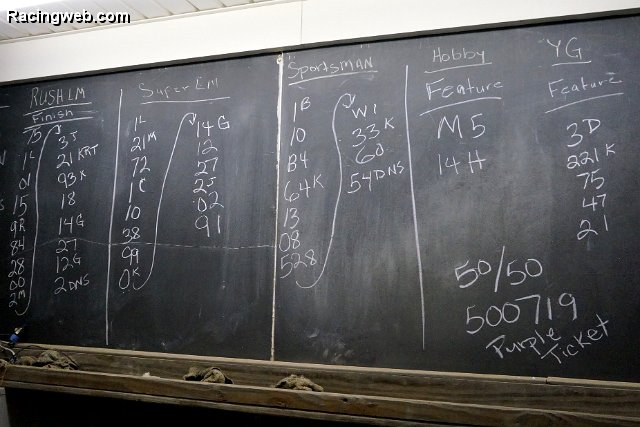 Racingweb.com
RUSH LM
Finish
75
1L
01
15
9R
84
28
00
2M
3J
21 KRT
93K
18
14G
27
12G
2 DNS
Super Em
1L
21M
72
1C
10
38
99
0K
14G
12
27
2J
02
91
Sportsman
1B
10
B4
64K
13
08
528
W1
33K
60
54 DNS
Hobby
Feature
M5
14H
YG
Feature
3D
221K
75
47
21
50/50
500719
Purple
Ticket